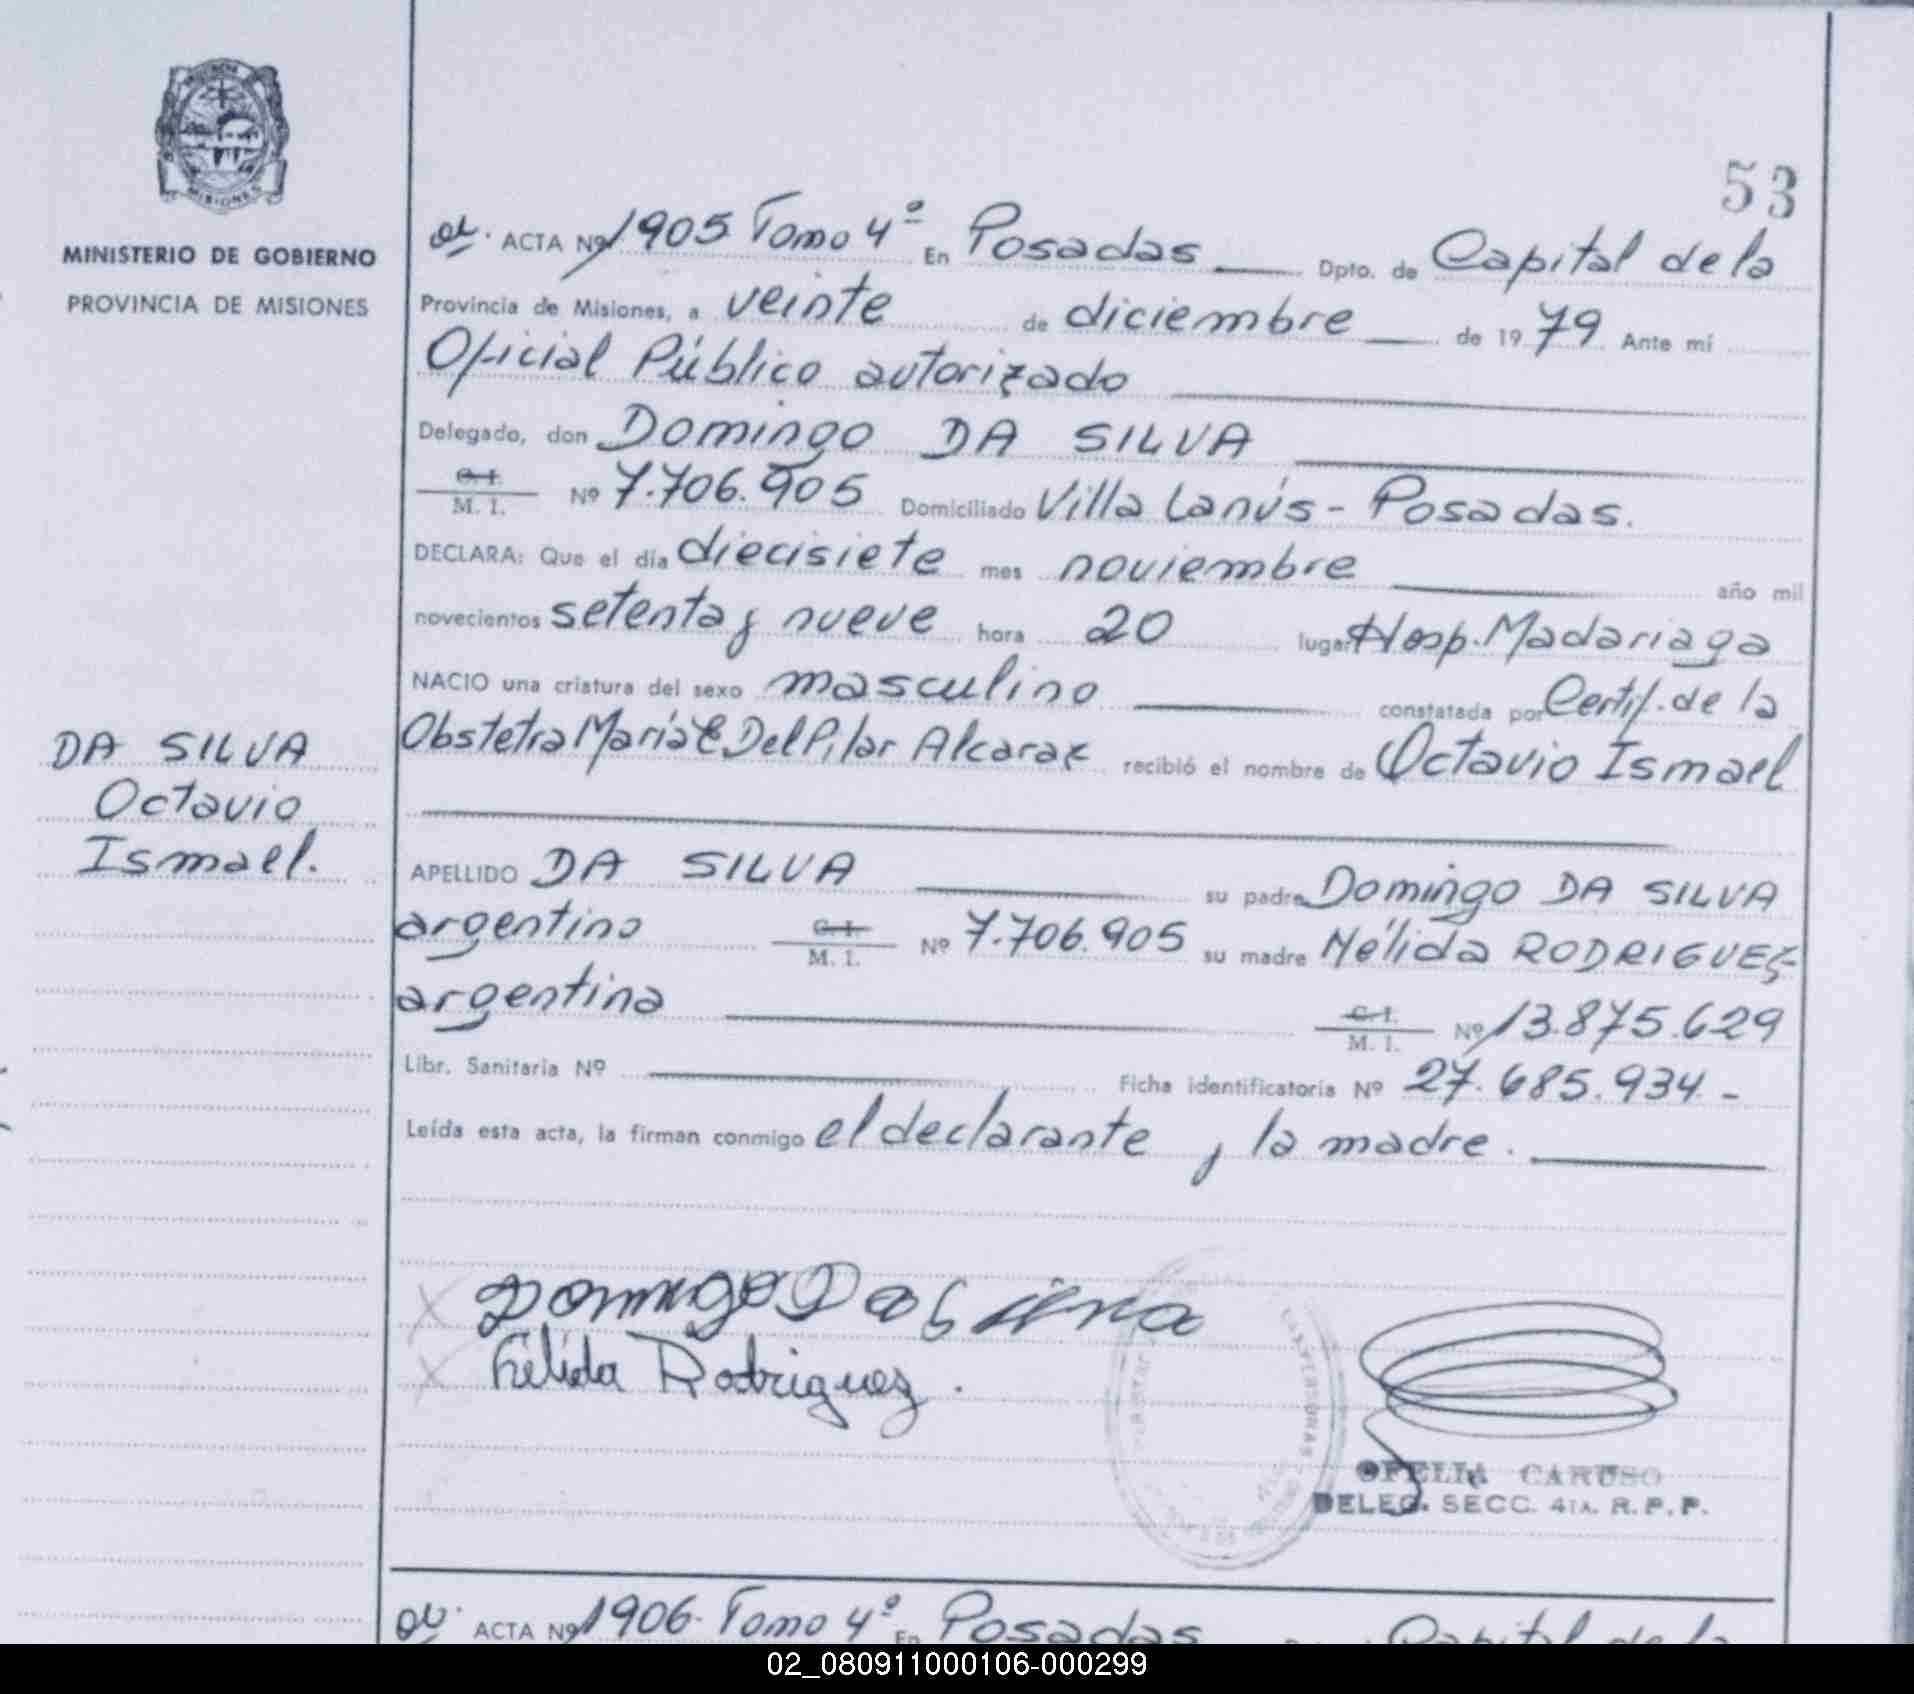 MISIONES
MINISTERIO DE GOBIERNO
PROVINCIA DE MISIONES
53
ACTA Nº 1905 Tomo 4º En Posadas Dpto. de Capital de la
Provincia de Misiones, a veinte de diciembre de 1979 Ante mí
Oficial Público autorizado
Delegado, don Domingo DA SILVA
C. I.
M. I. Nº 7.706.905 Domiciliado Villa Lanús - Posadas.
DECLARA: Que el día diecisiete mes noviembre año mil
novecientos setenta y nueve hora 20 lugar Hosp. Madariaga
NACIO una criatura del sexo masculino constatada por Certif. de la
Obstetra María Del Pilar Alcaraz recibió el nombre de Octavio Ismael
DA SILVA
Octavio
Ismael.
APELLIDO DA SILVA su padre Domingo DA SILVA
argentino C. I.
M. I. Nº 7.706.905 su madre Nélida RODRIGUEZ-
argentina C. I.
M. I. Nº 13.875.629
Libr. Sanitaria Nº Ficha identificatoria Nº 27.685.934.-
Leída esta acta, la firman conmigo el declarante y la madre.
Domingo Da Silva
Nélida Rodriguez.
OFELIA CARUSO
DELEG. SECC. 4TA. R. P. P.
ACTA Nº 1906 Tomo 4º En Posadas Capital de la
02_080911000106-000299